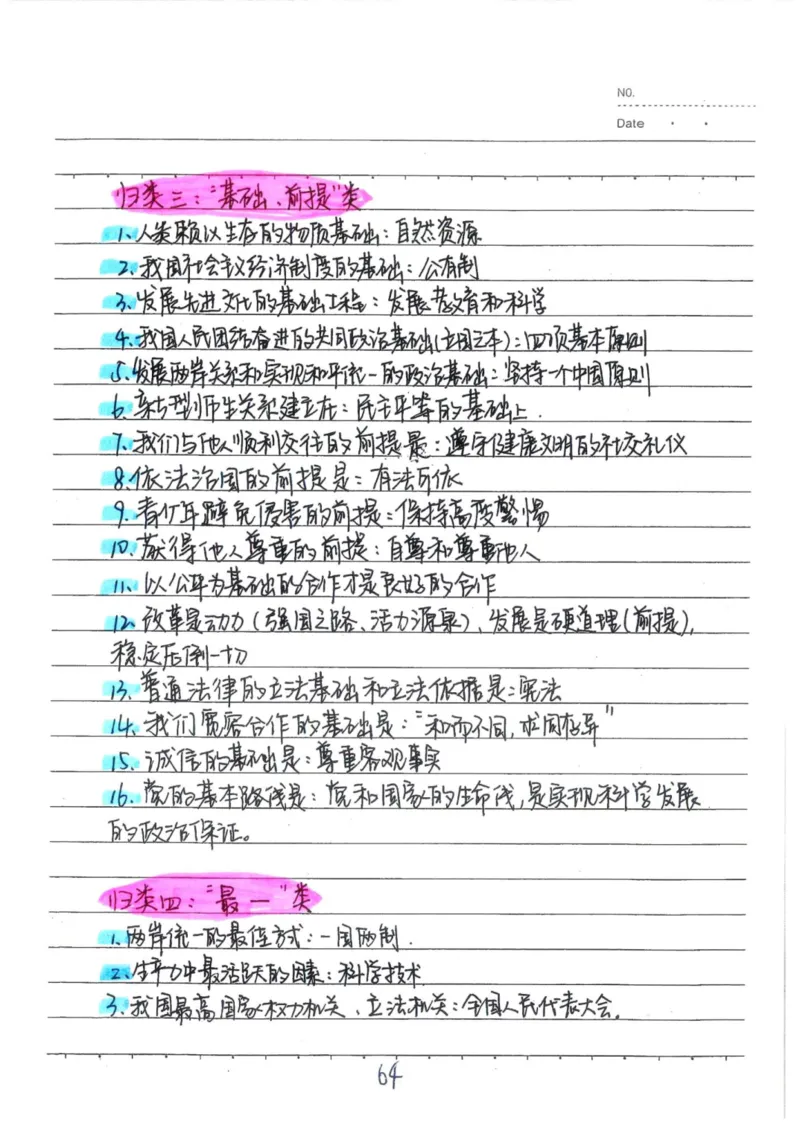 NO.
Date
归类三：“基础、前提”类
1、人类赖以生存的物质基础：自然资源
2、我国社会主义经济制度的基础：公有制
3、发展先进文化的基础工程：发展教育和科学
4、我国人民团结奋进的共同政治基础(立国之本)：四项基本原则
5、发展两岸关系和实现和平统一的政治基础：坚持一个中国原则
6、新型师生关系建立在：民主平等的基础上．
7、我们与他人顺利交往的前提是：遵守健康文明的社交礼仪
8、依法治国的前提是：有法可依
9、青少年避免侵害的前提：保持高度警惕
10、获得他人尊重的前提：自尊和尊重他人
11、以公平为基础的合作才是良好的合作
12、改革是动力（强国之路、活力源泉）、发展是硬道理(前提)，
稳定压倒一切
13、普通法律的立法基础和立法依据是：宪法
14、我们宽容合作的基础是：“和而不同，求同存异”
15、诚信的基础是：尊重客观事实
16、党的基本路线是：党和国家的生命线，是实现科学发展
的政治保证。
归类四：“最一”类
1、两岸统一的最佳方式：一国两制．
2、生产力中最活跃的因素：科学技术
3、我国最高国家权力机关、立法机关：全国人民代表大会。
64